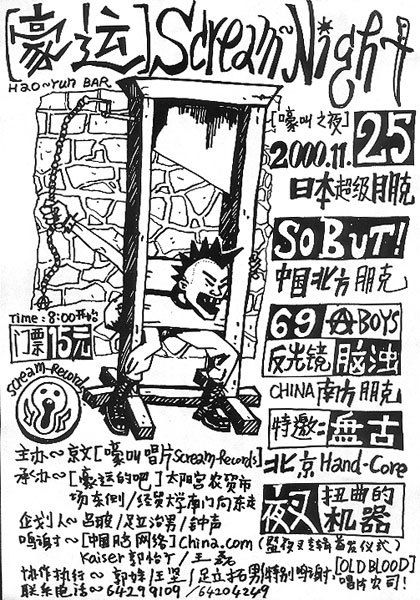 [豪运] Scream~Night
Hao~run BAR
[嚎叫之夜]
2000.11.25
日本超级朋克
SOBUT!
中国北方朋克
69 BOYS
反光镜 脑浊
CHINA 南方朋克
特邀: 盘古
北京Hand-Core
夜叉 扭曲的机器
Time:8:00开始
门票15元
Scream-Record
主办~京文[嚎叫唱片Scream-Records]
承办~[豪运的吧]太阳宫农贸市
场东侧/经贸大学南门向东走
企划人~吕玻/足立治男/钟声
鸣谢~[中国网络]China.com (夜叉专辑首发仪式)
Kaiser郭怡广/王磊
协作执行~郭锋/王坚/足立拓男 特别鸣谢:[OLD BLOOD]
唱片公司!
联系电话~64299109/64204249